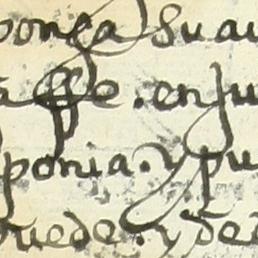 ponga su au
. en su
ponia. y pu
puede. y de